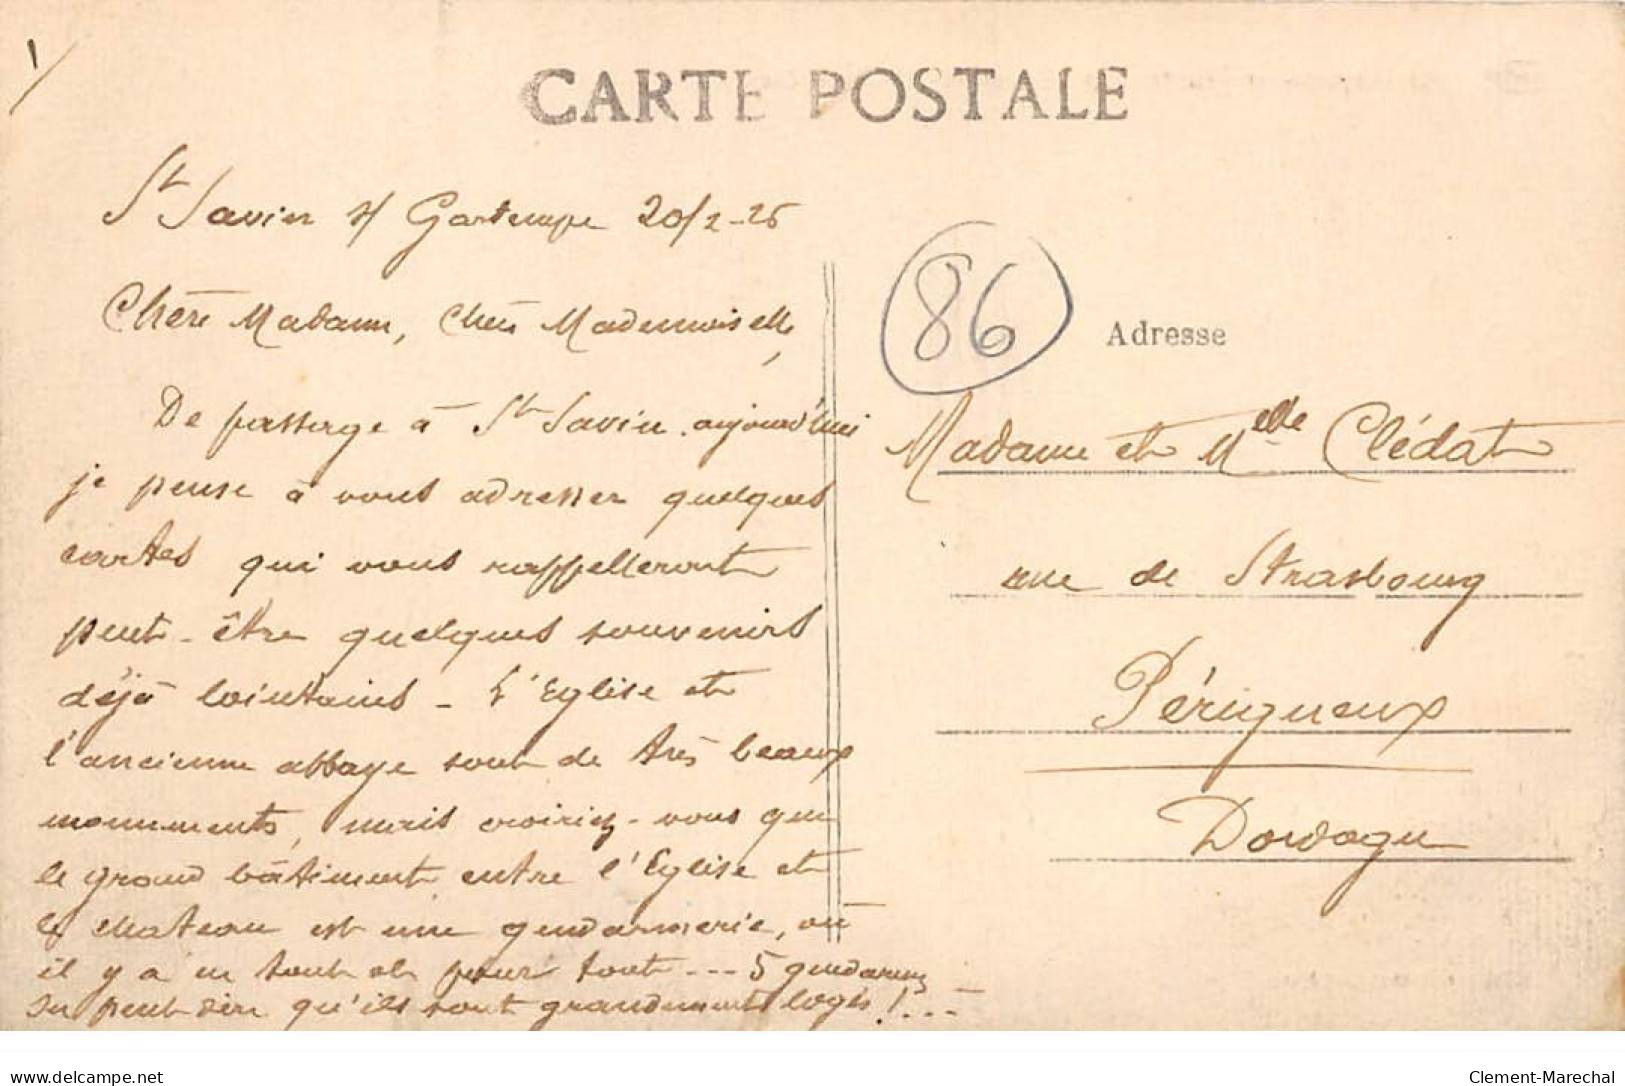 CARTE POSTALE
St Savin s/ Gartempe 20/2-26
Chère Madame, Chère Mademoiselle,
De passage à St Savin aujourd'hui
je pense à vous adresser quelques
cartes qui vous rappelleront
peut-être quelques souvenirs
déjà lointains - L'Eglise et
l'ancienne abbaye sont de très beaux
monuments, mais croiriez-vous que
le grand bâtiment entre l'Eglise et
le chateau est une gendarmerie, où
il y a en tout et pour tout --- 5 gendarmes
on peut dire qu'ils sont grandement logés !...
86
Adresse
Madame et Melle Clédat
rue de Strasbourg
Périgueux
Dordogne
delcampe.net
Clement-Marechal